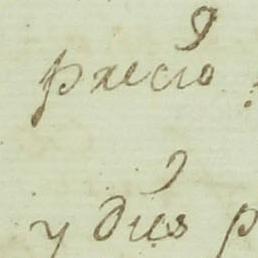 precio
y dies p